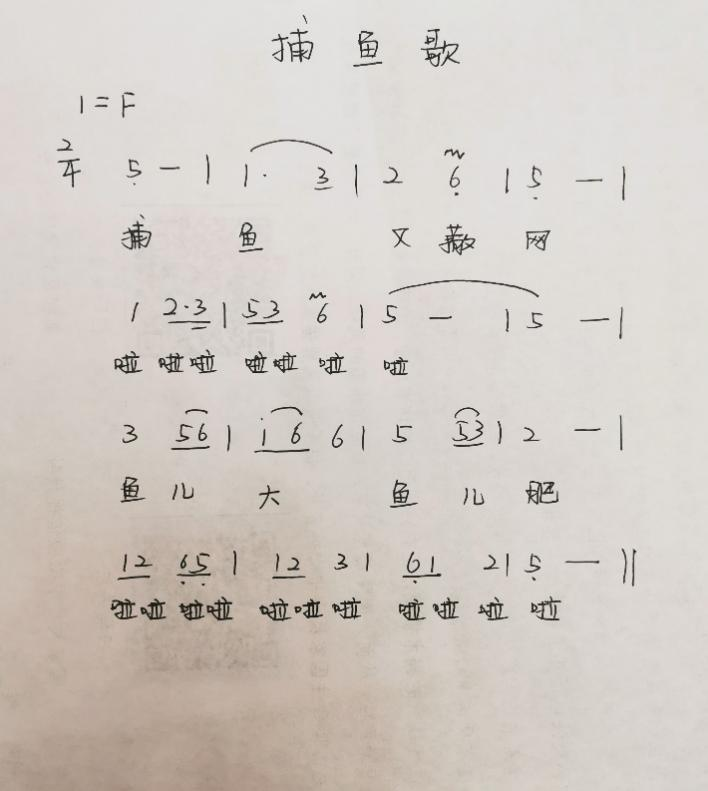 捕 鱼 歌
1 = F
2/4 5̣ — | 1· 3 | 2 6̣ | 5̣ — |
捕 鱼 又 撒 网
1 2·3 | 53 6 | 5 — | 5 — |
啦 啦啦 啦啦 啦 啦
3 56 | i 6 6 | 5 53 | 2 — |
鱼 儿 大 鱼 儿 肥
12 6̣5̣ | 12 3 | 6̣1 2 | 5̣ — ‖
啦啦 啦啦 啦啦 啦 啦啦 啦 啦